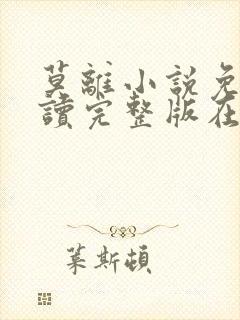 莫離小說免
讀完整版在
葉斯頓